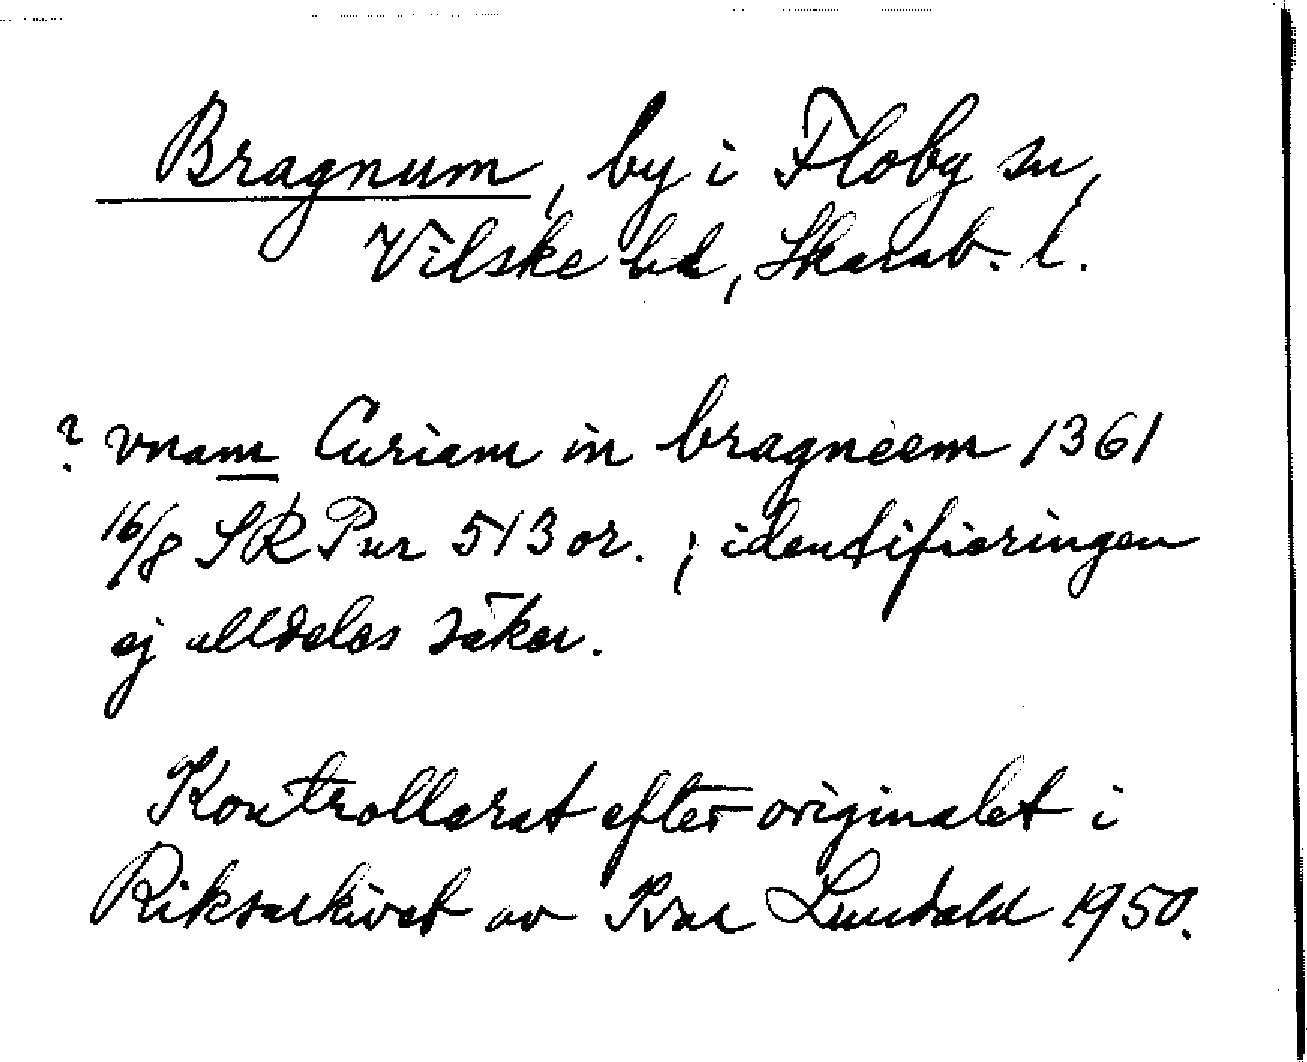 Bragnum, by i Floby sn,
Vilske hd, Skarab. l.
? vnam Curiam in bragneem 1361
16/8 SRPur 513 or. ; identifieringen
ej alldeles säker.
Kontrollerat efter originalet i
Riksarkivet av Ivar Lundahl 1950.